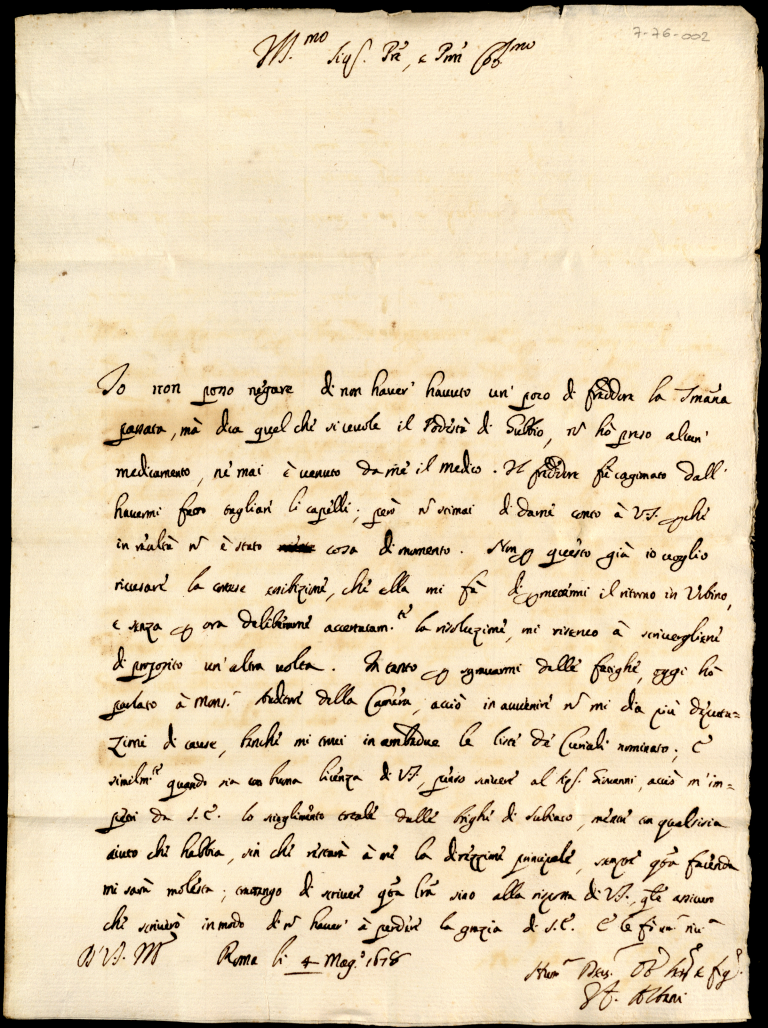 7-76-002
Ill.mo Sig.r Pre, e Pne Col.mo
Io non posso negare di non haver' havuto un' poco di freddore la Smāna
passata, mà dica quel che si vuole il Podestà di Gubbio, nō hò preso alcun'
medicamento, ne mai è venuto da mè il medico. Il freddore fù cagionato dall'
havermi fatto tagliare li capelli; però nō stimai di darne conto à V.S. p che
in realtà nō è stato cosa di momento. Non p questo già io voglio
ricusare la cortese esibizione, che ella mi fà di permettermi il ritorno in Urbino,
e senza p ora deliberarne accertatam.te la risoluzione, mi riservo à scrivergliene
di proposito un' altra volta. In tanto p sgravarmi delle fatighe, oggi hò
parlato à Mons.r Auditore della Camera, acciò in avvenire nō mi dia più deputa=
zioni di cause, benche mi trovi in ambedue le liste de Curiali nominato; E
similm.te quando sia con buona licenza di V.S., penso scrivere al Sig.r Giovanni, acciò m' im=
petri da S.E. lo scioglimento totale dalle brighe di Subiaco, mentre con qualsivia
aiuto che habbia, sin che resterà à me la direzzione principale, sempre qsta facenda
mi sarà molesta; trattengo di scrivere qsta lrā sino alla risposta di V.S., qle assicuro
che scriverò in modo di nō haver' à perdere la grazia di S.E. E le fò
D V.S. Ill.ma Roma li 4 Mag.o 1678
Hum.o Dev.o Obl. ser.e e fig.o
Albani